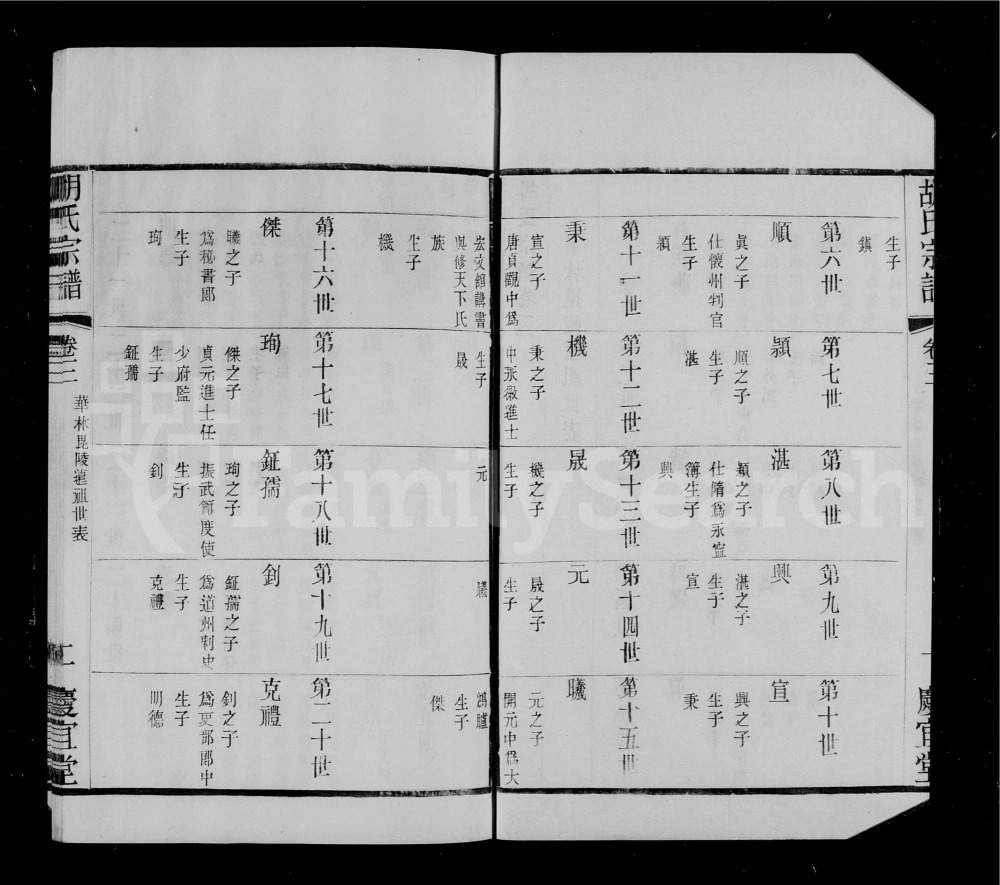 胡氏宗譜
卷三
一
慶宜堂
生子
鎮
第六世
順
眞之子
仕懷州判官
生子
穎
第七世
穎
順之子
生子
湛
第八世
湛
穎之子
仕隋爲永寧
簿生子
興
第九世
興
湛之子
生子
宣
第十世
宣
興之子
生子
秉
第十一世
秉
宣之子
唐貞觀中爲
崇文館讎書
與修天下氏
族
生子
機
第十二世
機
秉之子
中永徽進士
生子
晟
第十三世
晟
機之子
生子
元
第十四世
元
晟之子
生子
曦
第十五世
曦
元之子
開元中爲大
鴻臚
生子
傑
第十六世
傑
曦之子
爲秘書郎
生子
珣
第十七世
珣
傑之子
貞元進士任
少府監
生子
鉦孺
第十八世
鉦孺
珣之子
振武節度使
生子
釗
第十九世
釗
鉦孺之子
爲道州刺史
生子
克禮
第二十世
克禮
釗之子
爲吏部郎中
生子
明德
胡氏宗譜
卷三
華林毘陵舊祖世表
二
慶宜堂
FamilySearch